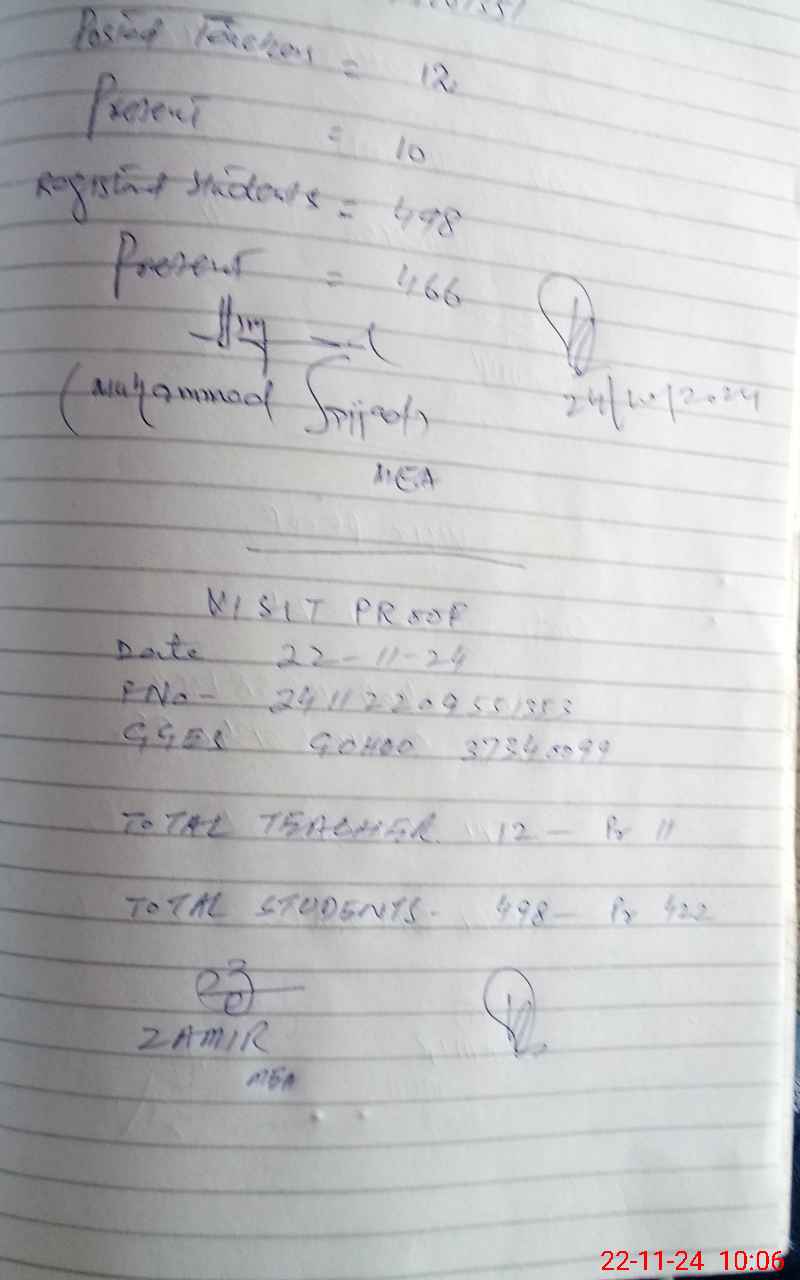 Posted Teachers = 12
Present = 10
Registerd Students = 498
Present = 466
24/10/2024
(Muhammad
MEA
VISIT PROOF
Date 22-11-24
FNo- 241122209551353
GGES GOHOO 37340099
TOTAL TEACHER 12 - Pr 11
TOTAL STUDENTS- 498 - Pr 422
ZAMIR
MEA
22-11-24 10:06